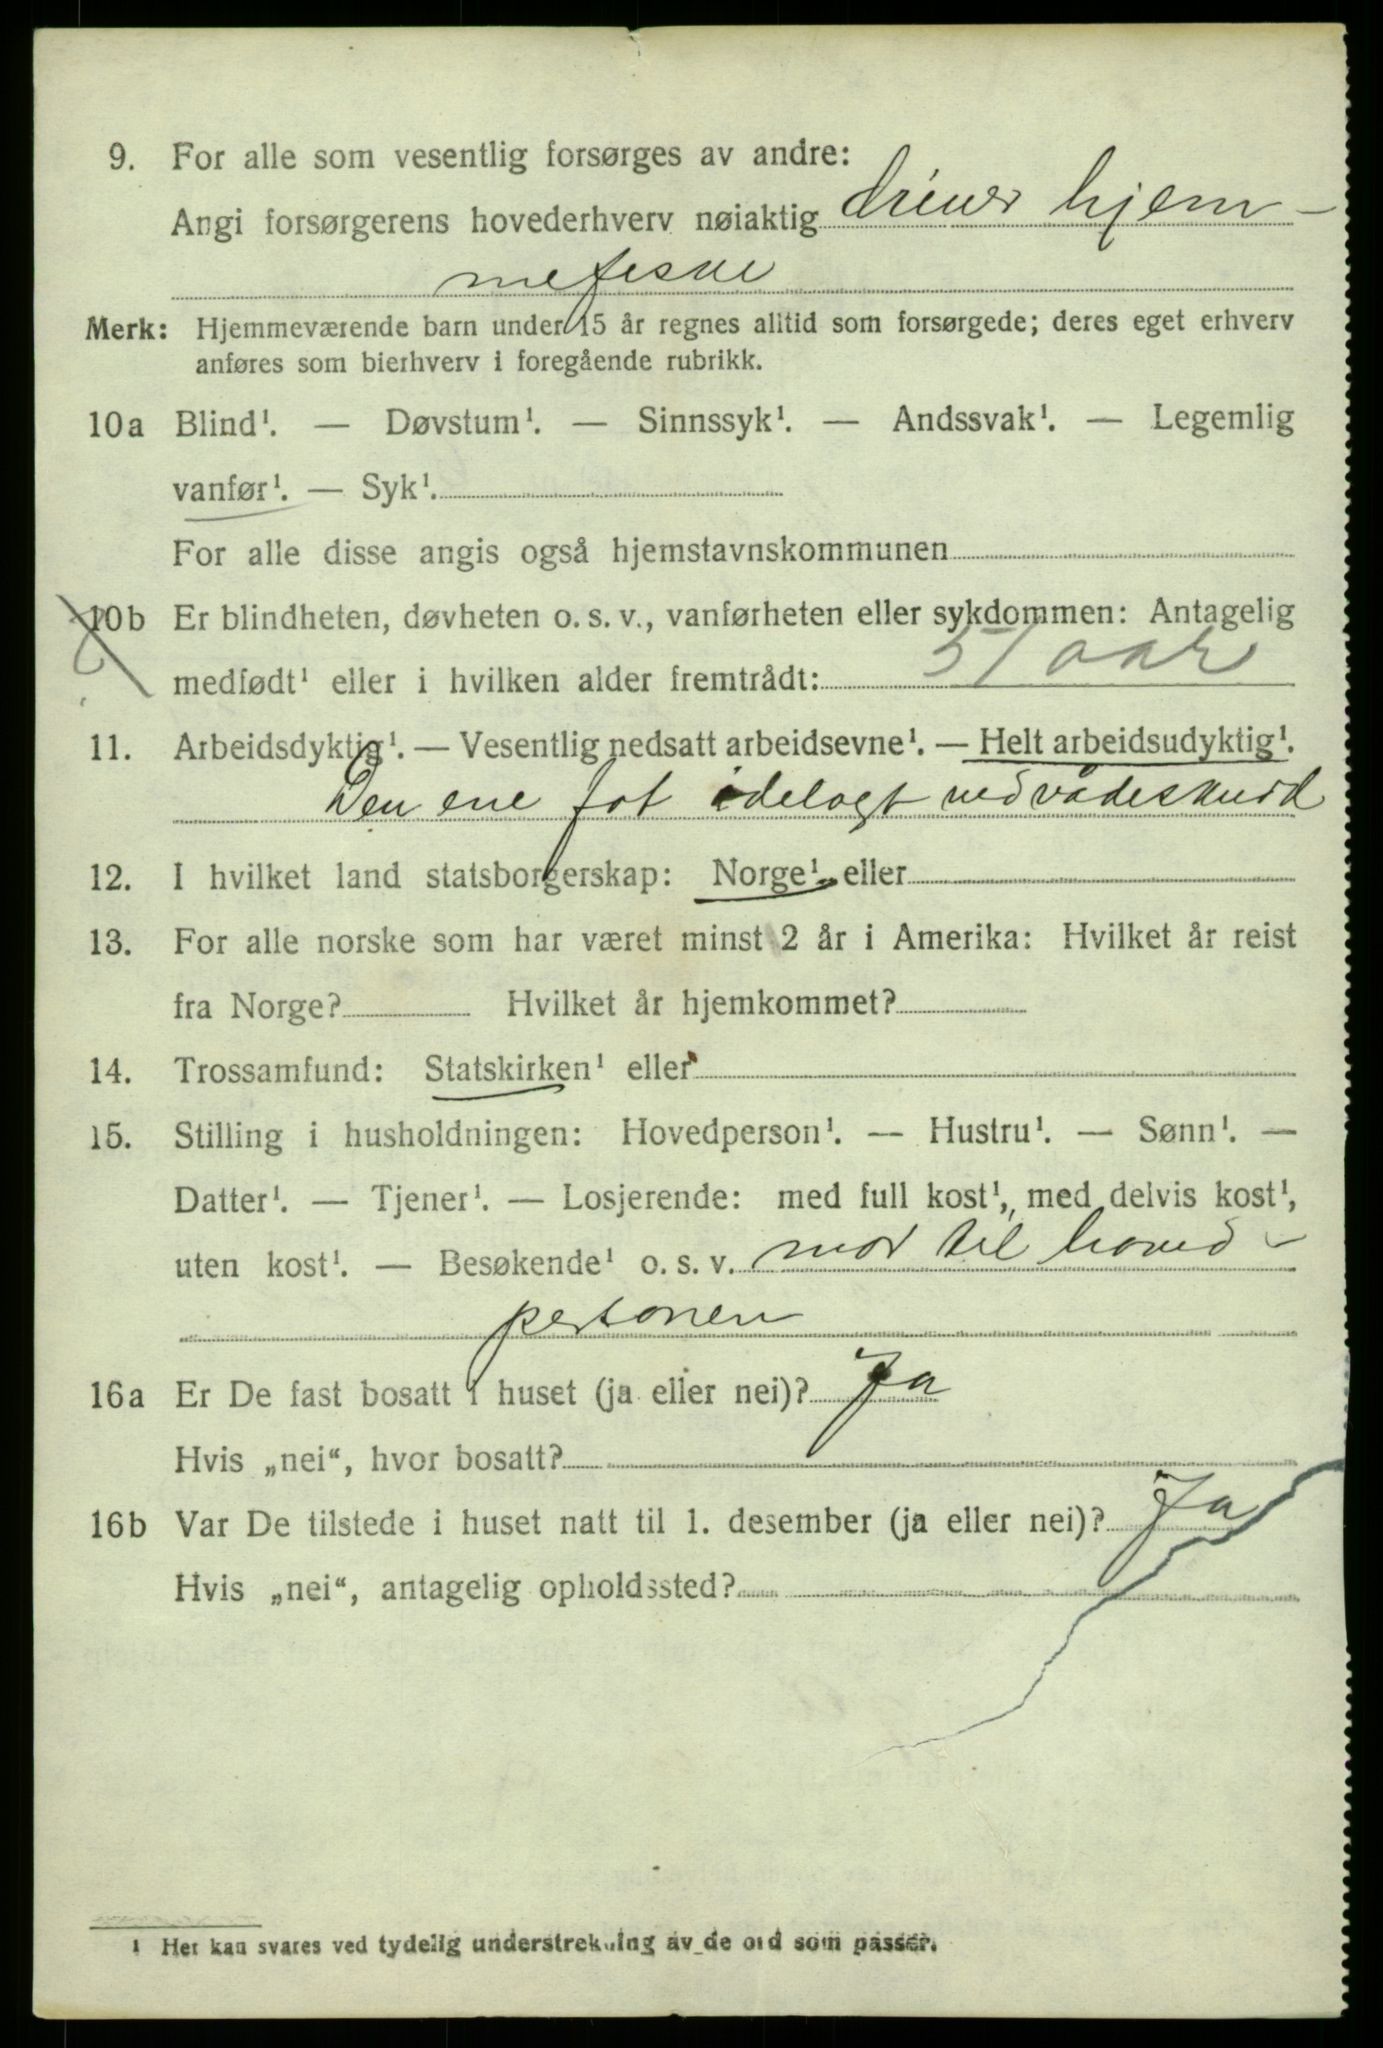 9. For alle som vesentlig forsørges av andre:
Angi forsørgerens hovederhverv nøiaktig driver hjem-
mefiske
Merk: Hjemmeværende barn under 15 år regnes alltid som forsørgede; deres eget erhverv
anføres som bierhverv i foregående rubrikk.
10a Blind¹. — Døvstum¹. — Sinnssyk¹. — Andssvak¹. — Legemlig
vanfør¹. — Syk¹.
For alle disse angis også hjemstavnskommunen
10b Er blindheten, døvheten o. s. v., vanførheten eller sykdommen: Antagelig
medfødt¹ eller i hvilken alder fremtrådt: 51 aar
11. Arbeidsdyktig¹. — Vesentlig nedsatt arbeidsevne¹. — Helt arbeidsudyktig¹.
Den ene fot ødelagt ved vådeskudd
12. I hvilket land statsborgerskap: Norge¹ eller
13. For alle norske som har været minst 2 år i Amerika: Hvilket år reist
fra Norge? Hvilket år hjemkommet?
14. Trossamfund: Statskirken¹ eller
15. Stilling i husholdningen: Hovedperson¹. — Hustru¹. — Sønn¹. —
Datter¹. — Tjener¹. — Losjerende: med full kost¹, med delvis kost¹,
uten kost¹. — Besøkende¹ o. s. v. mor til hoved-
personen
16a Er De fast bosatt i huset (ja eller nei)? Ja
Hvis „nei“, hvor bosatt?
16b Var De tilstede i huset natt til 1. desember (ja eller nei)? Ja
Hvis „nei“, antagelig opholdssted?
1 Her kan svares ved tydelig understrekning av de ord som passer.